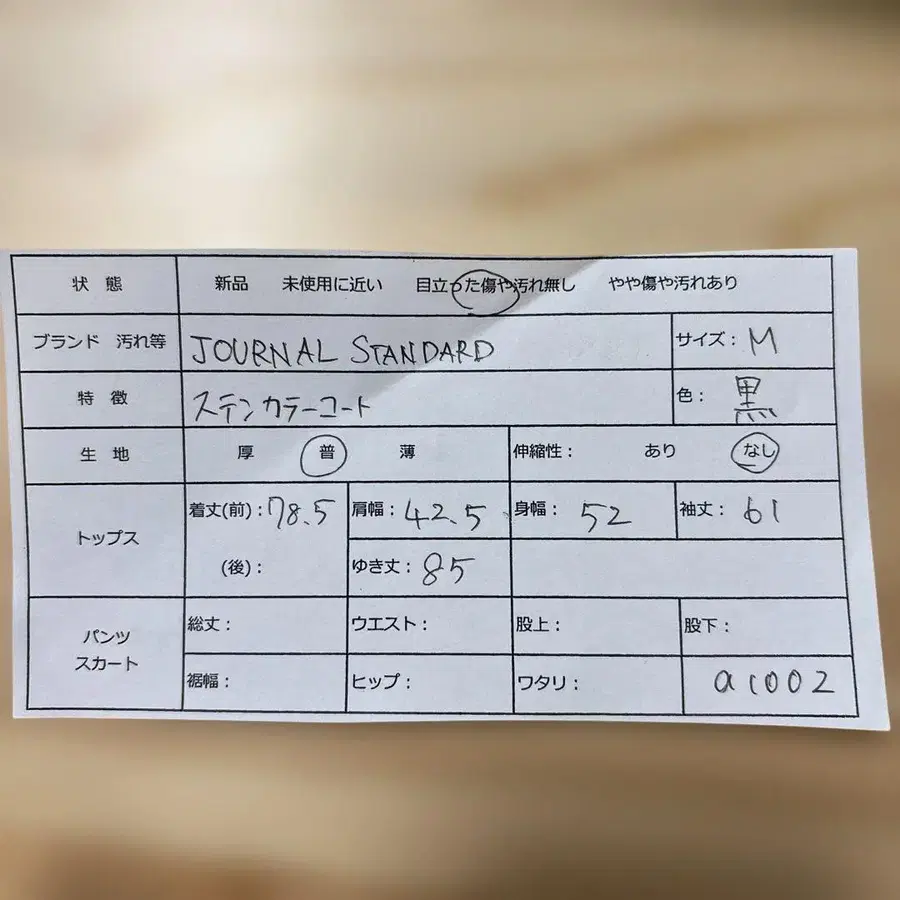 状態 新品 未使用に近い 目立った傷や汚れ無し やや傷や汚れあり
ブランド 汚れ等 JOURNAL STANDARD サイズ： M
特徴 ステンカラーコート 色： 黒
生地 厚 普 薄 伸縮性： あり なし
トップス 着丈(前)：78.5 肩幅：42.5 身幅： 52 袖丈： 61
(後)： ゆき丈：85
パンツ スカート 総丈： ウエスト： 股上： 股下：
裾幅： ヒップ： ワタリ： a1002